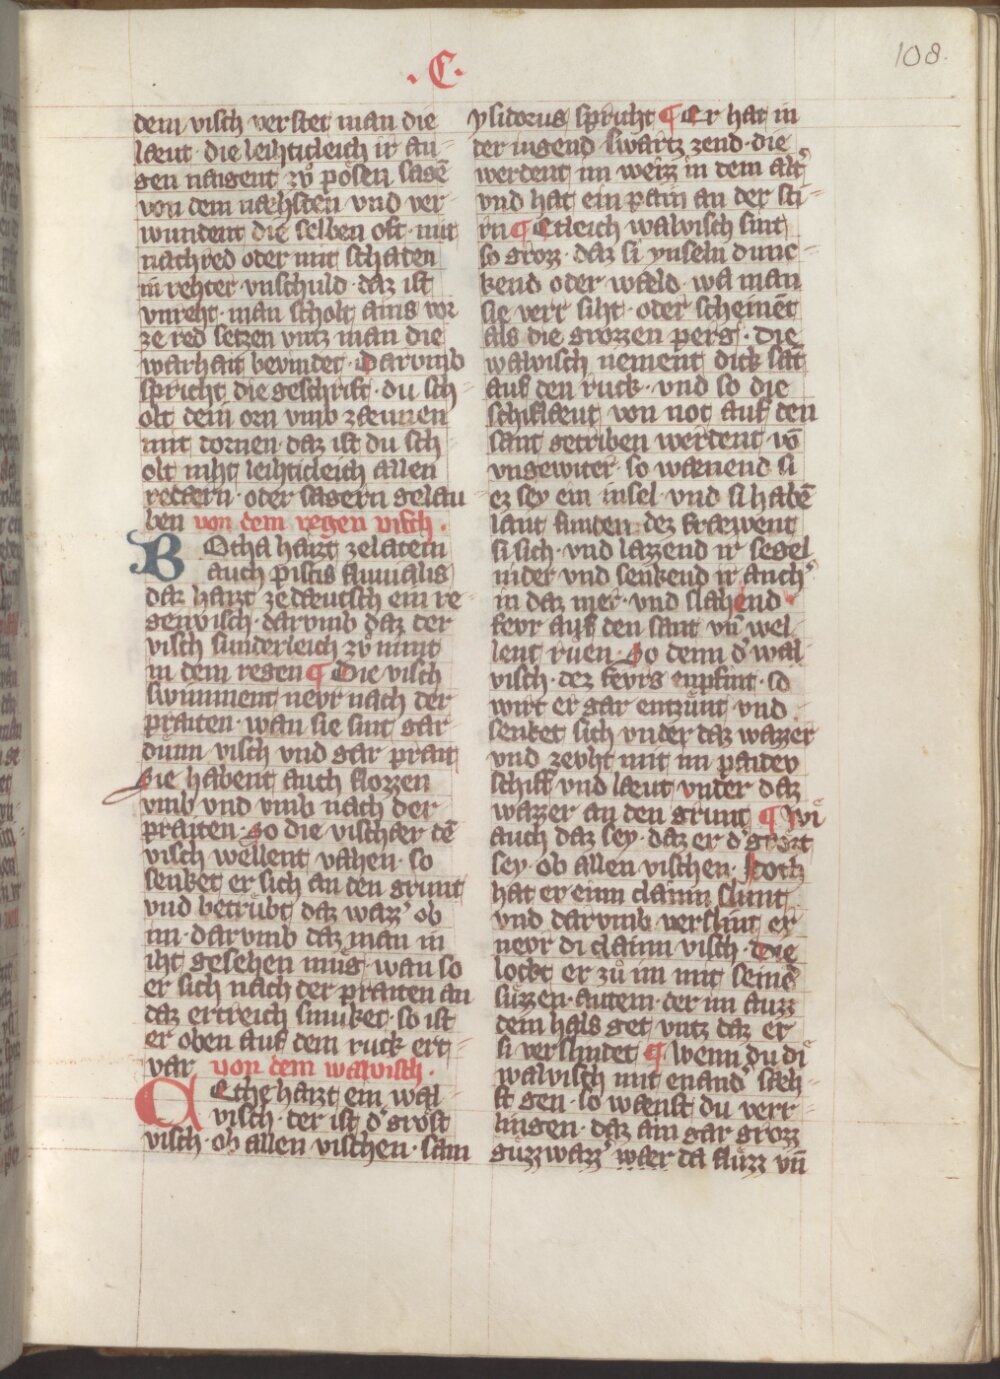 108.
. C .
dem visch verstet man die
læut · die leihticleich ir au-
gen naigent zů pösen sagē
von dem næhsten vnd ver-
wundent die selben oft mit
nachred oder mit schaden
in rehter vnschuld · daz ist
vnreht · man scholt ains vor
ze red setzen vntz man die
warhait bevindet · Darvmb
spricht die geschrift · du sch-
olt dein orn vmb zæunen
mit dornen · daz ist du sch-
olt niht leihticleich allen
redærn · oder sagern gelau-
ben von dem regen visch ·
BOtha haizt ze latein
auch piscis fluuialis
daz haizt ze dæutsch ein re-
genvisch · darvmb daz der
visch sunderleich zů nimt
in dem regen ¶ Die visch
swimment nevr nach der
praiten · wan sie sint gar
dünn visch vnd gar prait
Sie habent auch flozzen
vmb vnd vmb nach der
praiten · So die vischær dē
visch wellent vahen · so
senket er sich an den grunt
vnd betrübt daz wazz' ob
im · darvmb daz man in
iht gesehen müg · wan so
er sich nach der praiten an
daz ertreich smuket · so ist
er oben auf dem ruck ert-
var von dem walvisch ·
CEthe haizt ein wal-
visch · der ist d' gröst
visch · ob allen vischen · sam
ysidorus spricht ¶ Er hat in
der iugend swartz zend · die
werdent im weizz in dem alt'
vnd hat ein pain an der sti-
rn ¶ Etleich walvisch sint
so grozz · daz si ynseln dunc-
kend oder wæld · wa man
sie verr siht · oder scheinēt
als die grozzen perg · die
walvisch nement dick sāt
auf den ruck · vnd so die
schiflæut von not auf den
sant getriben werdent vō
vngewiter · so wænend si
ez sey ein insel · vnd si habē
lant funden · dez fræwent
si sich · vnd lazzend ir segel
nider vnd senkend ir anch'
in daz mer · vnd slahend
fevr auf den sant vn̄ wel-
lent ruen · So denn d' wal-
visch · dez fevrs enpfint · so
wirt er gar entzünt vnd
senket sich vnder daz wazzer
vnd zevht mit im paidev
schiff vnd læut vnder daz
wazzer an den grunt ¶ Wi
auch daz sey · daz er d' gröszt
sey · ob allen vischen · Idoch
hat er einn clainn slunt
vnd darvmb verslint er
nevr di clainn visch · Die
lockt er zů im mit seinē
süzzen · autem · der im auzz
dem hals get vntz daz er
si verslindet ¶ Wenn du di
walvisch mit enand' sæh-
st gen · so wænst du verr-
lingen · daz ain gar grozz
güzzwazz' wær da flüzz vn̄